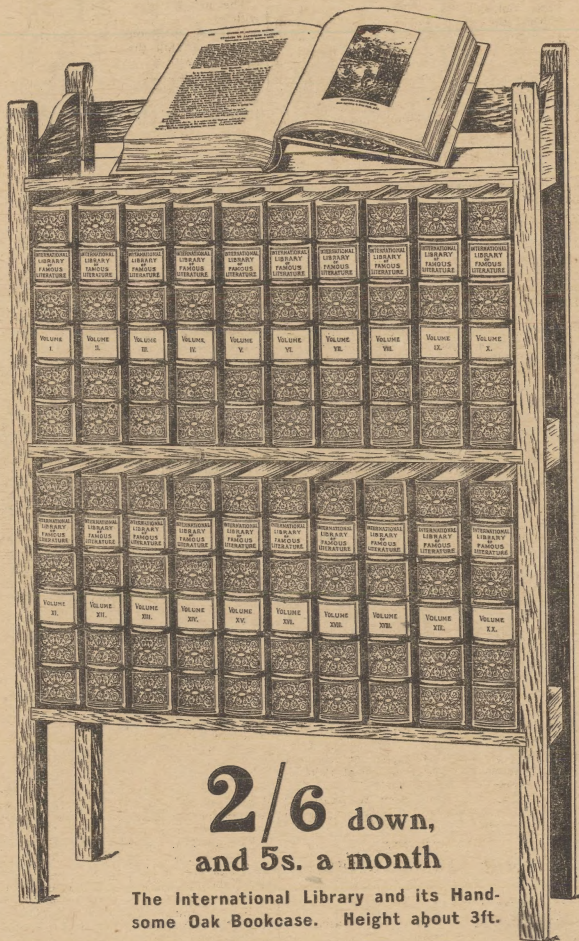 INTERNATIONAL
LIBRARY
OF
FAMOUS
LITERATURE
VOLUME
I.
INTERNATIONAL
LIBRARY
OF
FAMOUS
LITERATURE
VOLUME
II.
INTERNATIONAL
LIBRARY
OF
FAMOUS
LITERATURE
VOLUME
III.
INTERNATIONAL
LIBRARY
OF
FAMOUS
LITERATURE
VOLUME
IV.
INTERNATIONAL
LIBRARY
OF
FAMOUS
LITERATURE
VOLUME
V.
INTERNATIONAL
LIBRARY
OF
FAMOUS
LITERATURE
VOLUME
VI.
INTERNATIONAL
LIBRARY
OF
FAMOUS
LITERATURE
VOLUME
VII.
INTERNATIONAL
LIBRARY
OF
FAMOUS
LITERATURE
VOLUME
VIII.
INTERNATIONAL
LIBRARY
OF
FAMOUS
LITERATURE
VOLUME
IX.
INTERNATIONAL
LIBRARY
OF
FAMOUS
LITERATURE
VOLUME
X.
INTERNATIONAL
LIBRARY
OF
FAMOUS
LITERATURE
VOLUME
XI.
INTERNATIONAL
LIBRARY
OF
FAMOUS
LITERATURE
VOLUME
XII.
INTERNATIONAL
LIBRARY
OF
FAMOUS
LITERATURE
VOLUME
XIII.
INTERNATIONAL
LIBRARY
OF
FAMOUS
LITERATURE
VOLUME
XIV.
INTERNATIONAL
LIBRARY
OF
FAMOUS
LITERATURE
VOLUME
XV.
INTERNATIONAL
LIBRARY
OF
FAMOUS
LITERATURE
VOLUME
XVI.
INTERNATIONAL
LIBRARY
OF
FAMOUS
LITERATURE
VOLUME
XVII.
INTERNATIONAL
LIBRARY
OF
FAMOUS
LITERATURE
VOLUME
XVIII.
INTERNATIONAL
LIBRARY
OF
FAMOUS
LITERATURE
VOLUME
XIX.
INTERNATIONAL
LIBRARY
OF
FAMOUS
LITERATURE
VOLUME
XX.
2/6 down,
and 5s. a month
The International Library and its Hand-
some Oak Bookcase. Height about 3ft.